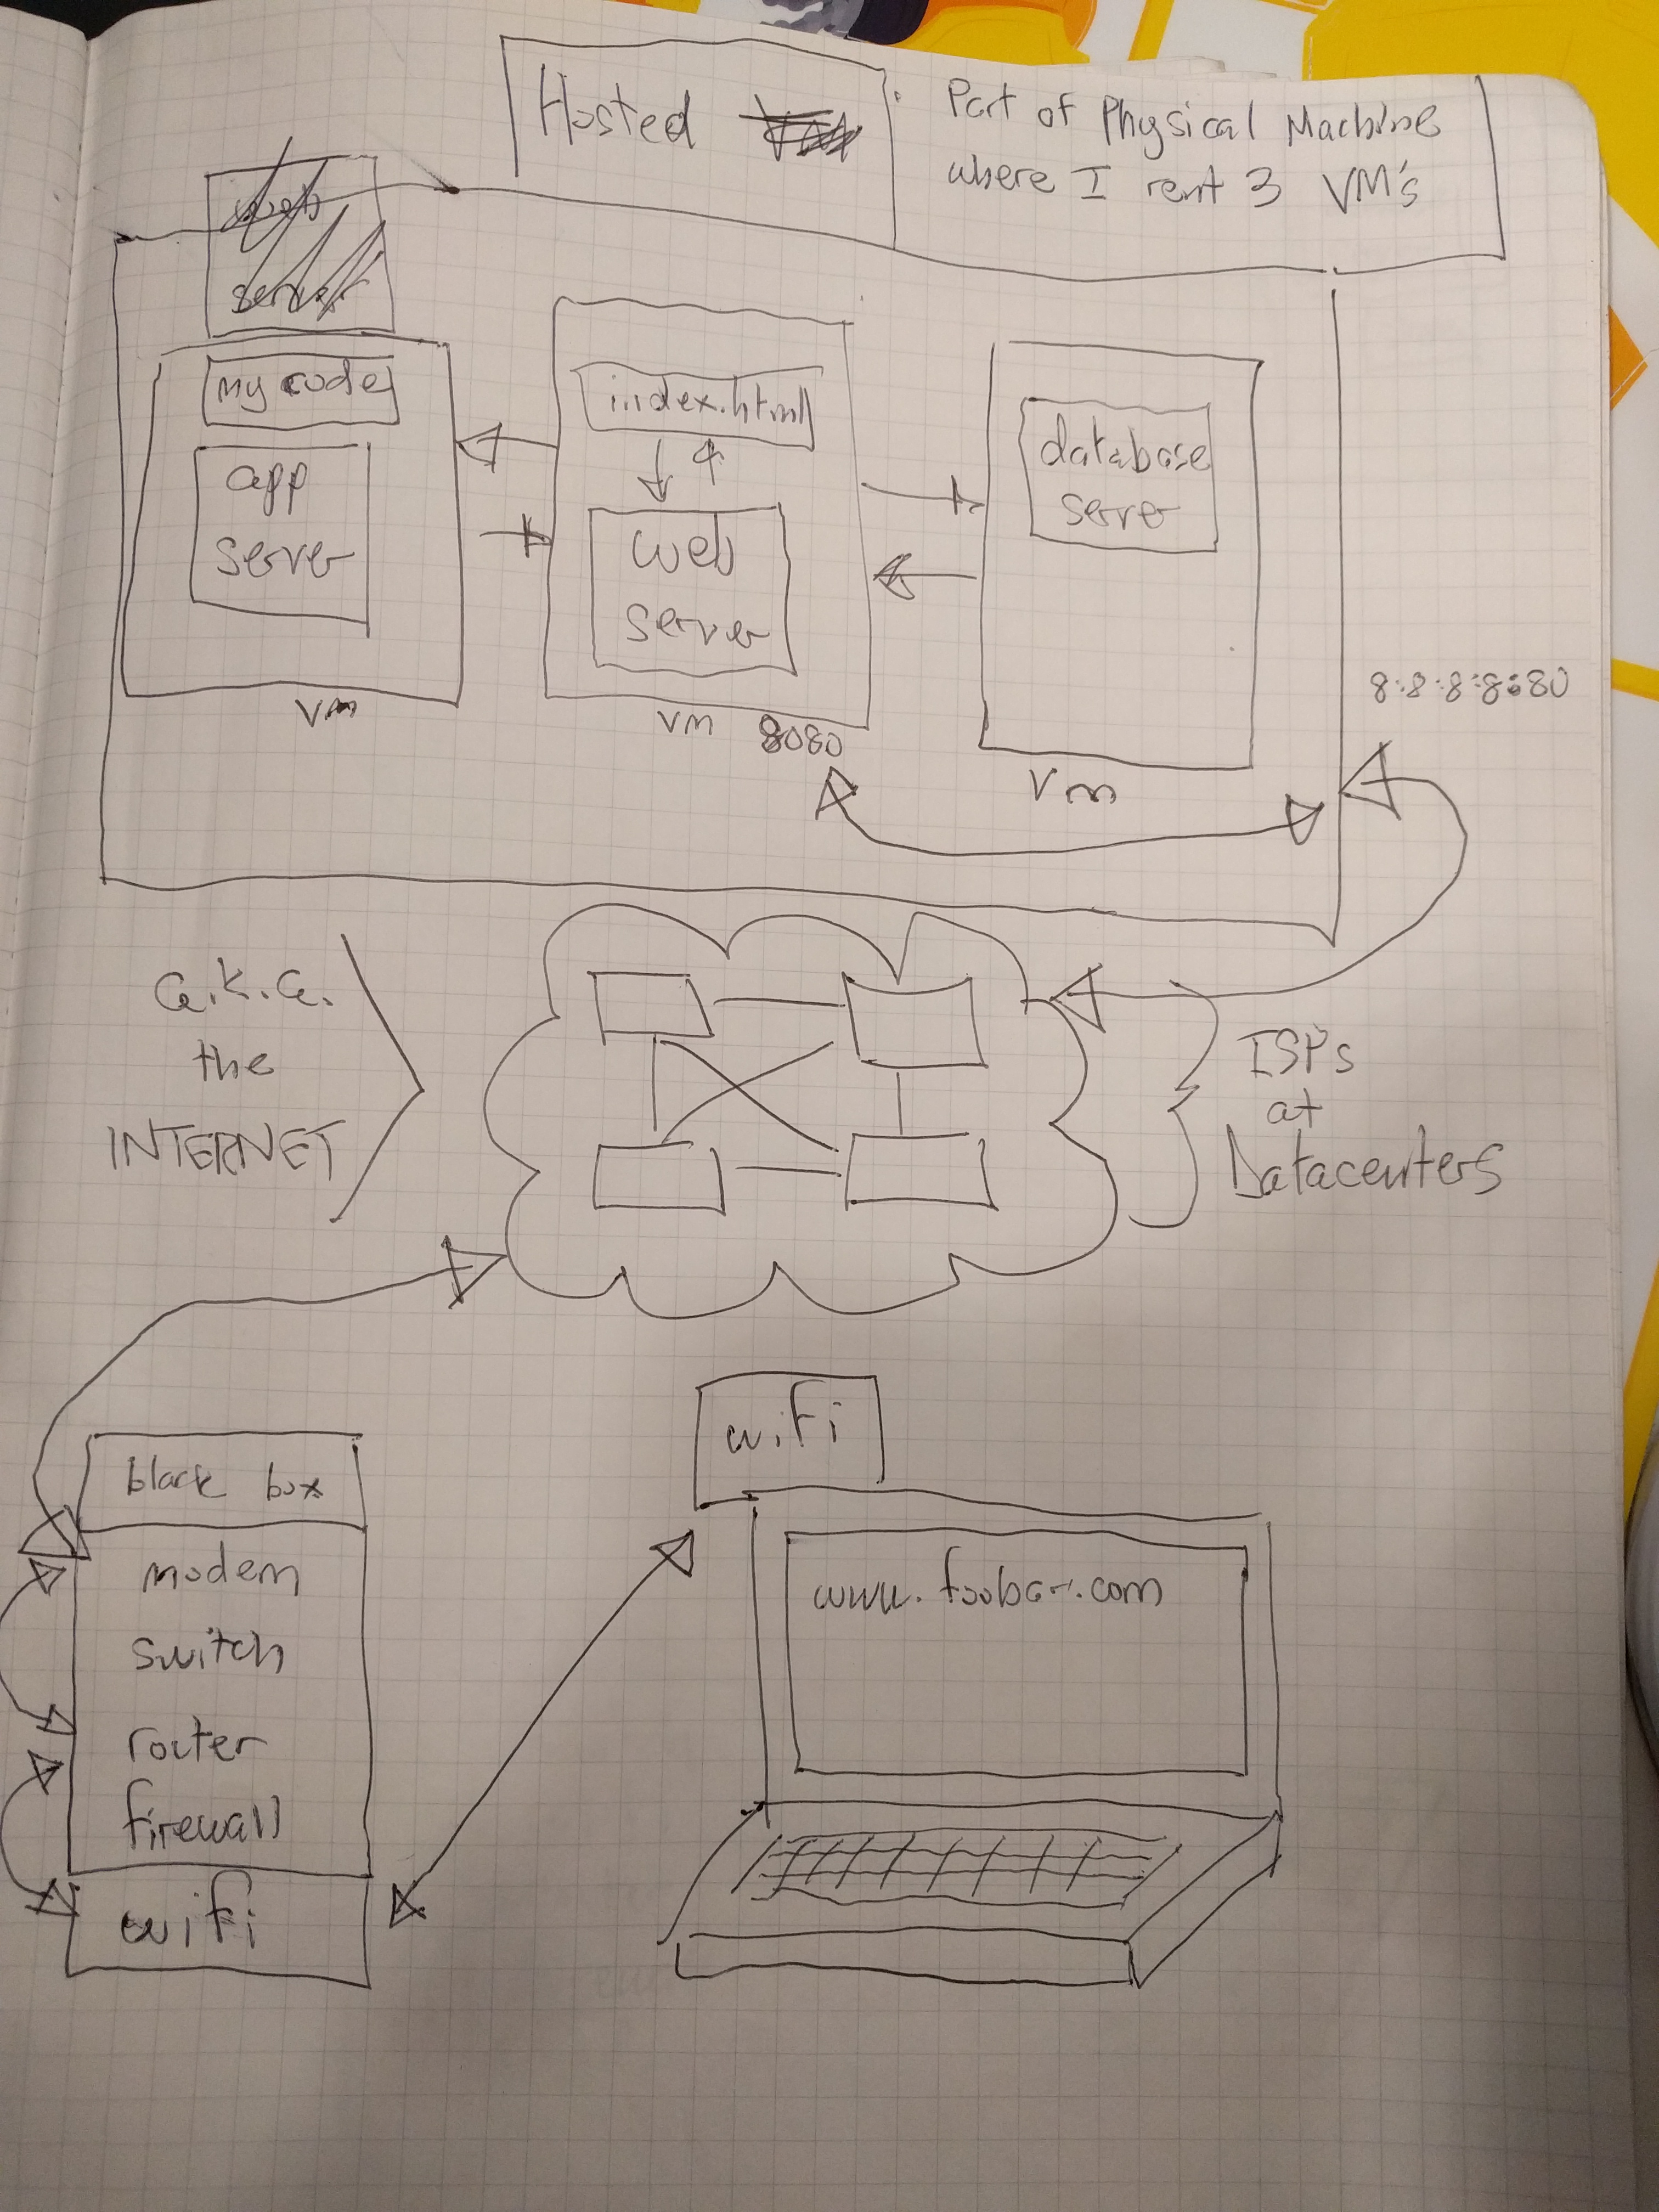 Hosted
Part of Physical Machine
where I rent 3 VM's
web
server
my code
app
server
vm
index.html
web
server
vm 8080
database
server
Vm
8:8:8:8:80
a.k.a.
the
INTERNET
ISPs
at
Datacenters
black box
modem
switch
router
firewall
wifi
wifi
www.foobar.com